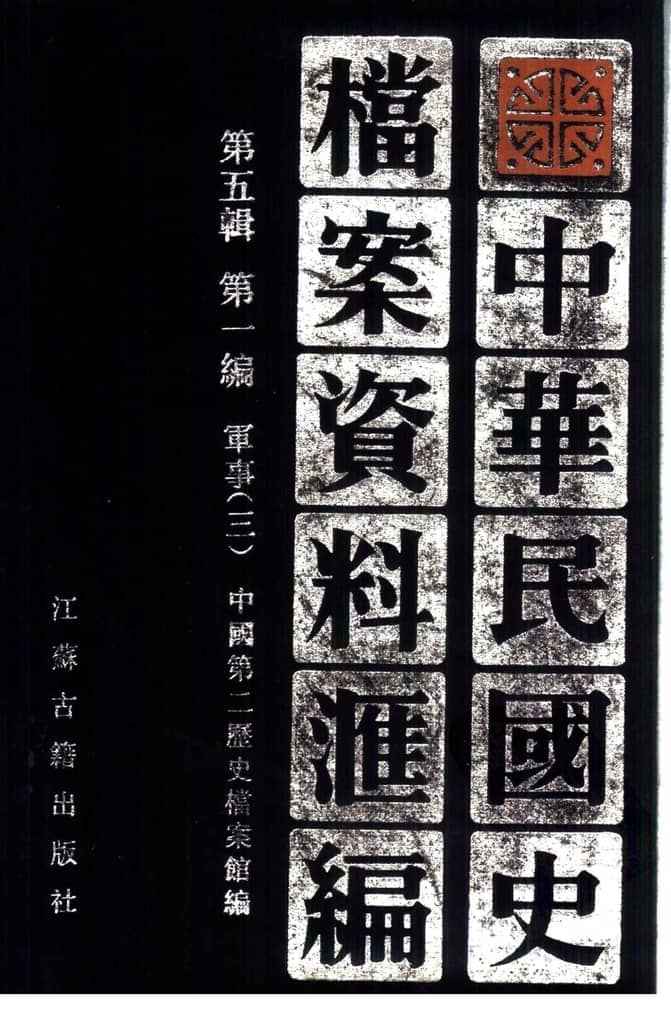 中華民國史
檔案資料滙編
第五輯 第一編 軍事(三) 中國第二歷史檔案館編
江蘇古籍出版社